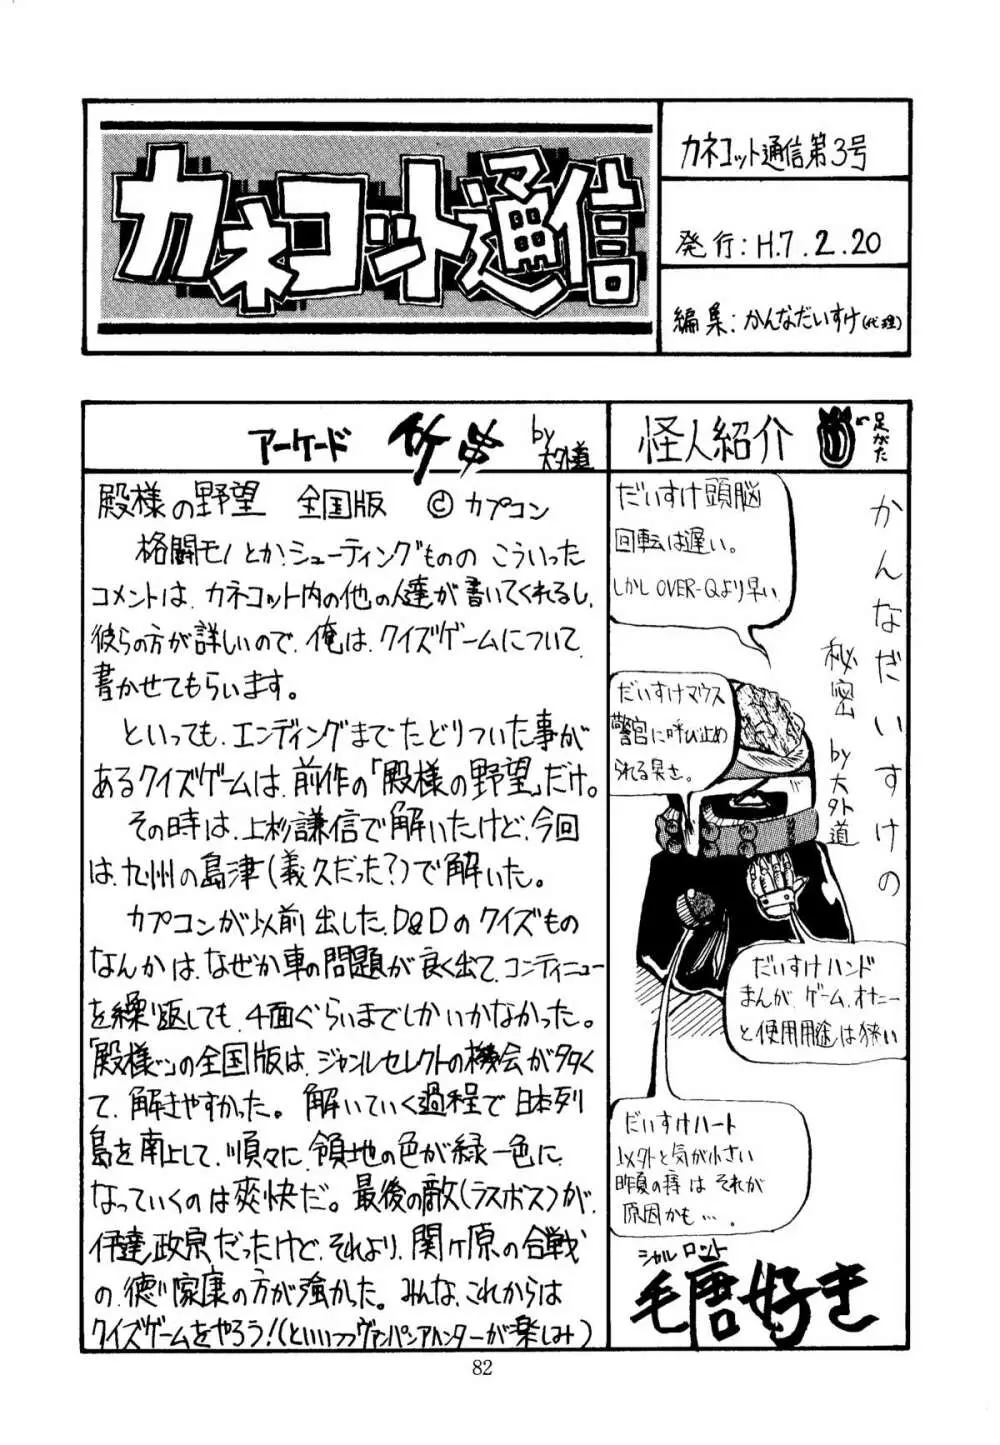 カネコット通信
カネコット通信第3号
発行：H.7.2.20
編集：かんなだいすけ(代理)
アーケード 竹串 by大外道
殿様の野望 全国版 ©カプコン
格闘モノとか、シューティングものの こういった
コメントは、カネコット内の他の人達が書いてくれるし、
彼らの方が詳しいので、俺は、クイズゲームについて
書かせてもらいます。
といっても、エンディングまでたどりついた事が
あるクイズゲームは、前作の「殿様の野望」だけ。
その時は、上杉謙信で解いたけど、今回
は、九州の島津(義久だった?)で解いた。
カプコンが以前出した、D&Dのクイズもの
なんかは、なぜか車の問題が良く出て、コンティニュー
を繰り返しても、4面ぐらいまでしかいかなかった。
「殿様〜」の全国版は、ジャンルセレクトの機会が多く
て、解きやすかった。解いていく過程で日本列
島を南上して、順々に領地の色が緑一色に
なっていくのは爽快だ。最後の敵(ラスボス)が、
伊達政宗だったけど、それより、関ヶ原の合戦
の、徳川家康の方が強かった。みんな、これからは
クイズゲームをやろう!(といいつつヴァンパイアハンターが楽しみ)
怪人紹介
足がた
かんなだいすけの
秘密 by大外道
だいすけ頭脳
回転は遅い。
しかしOVER-Qより早い
だいすけマウス
警官に呼び止め
られる臭さ。
だいすけハンド
まんが、ゲーム、オナニー
と使用用途は狭い
だいすけハート
以外と気が小さい
昨夏の痔は それが
原因かも…。
シャルロット
毛唐好き
82